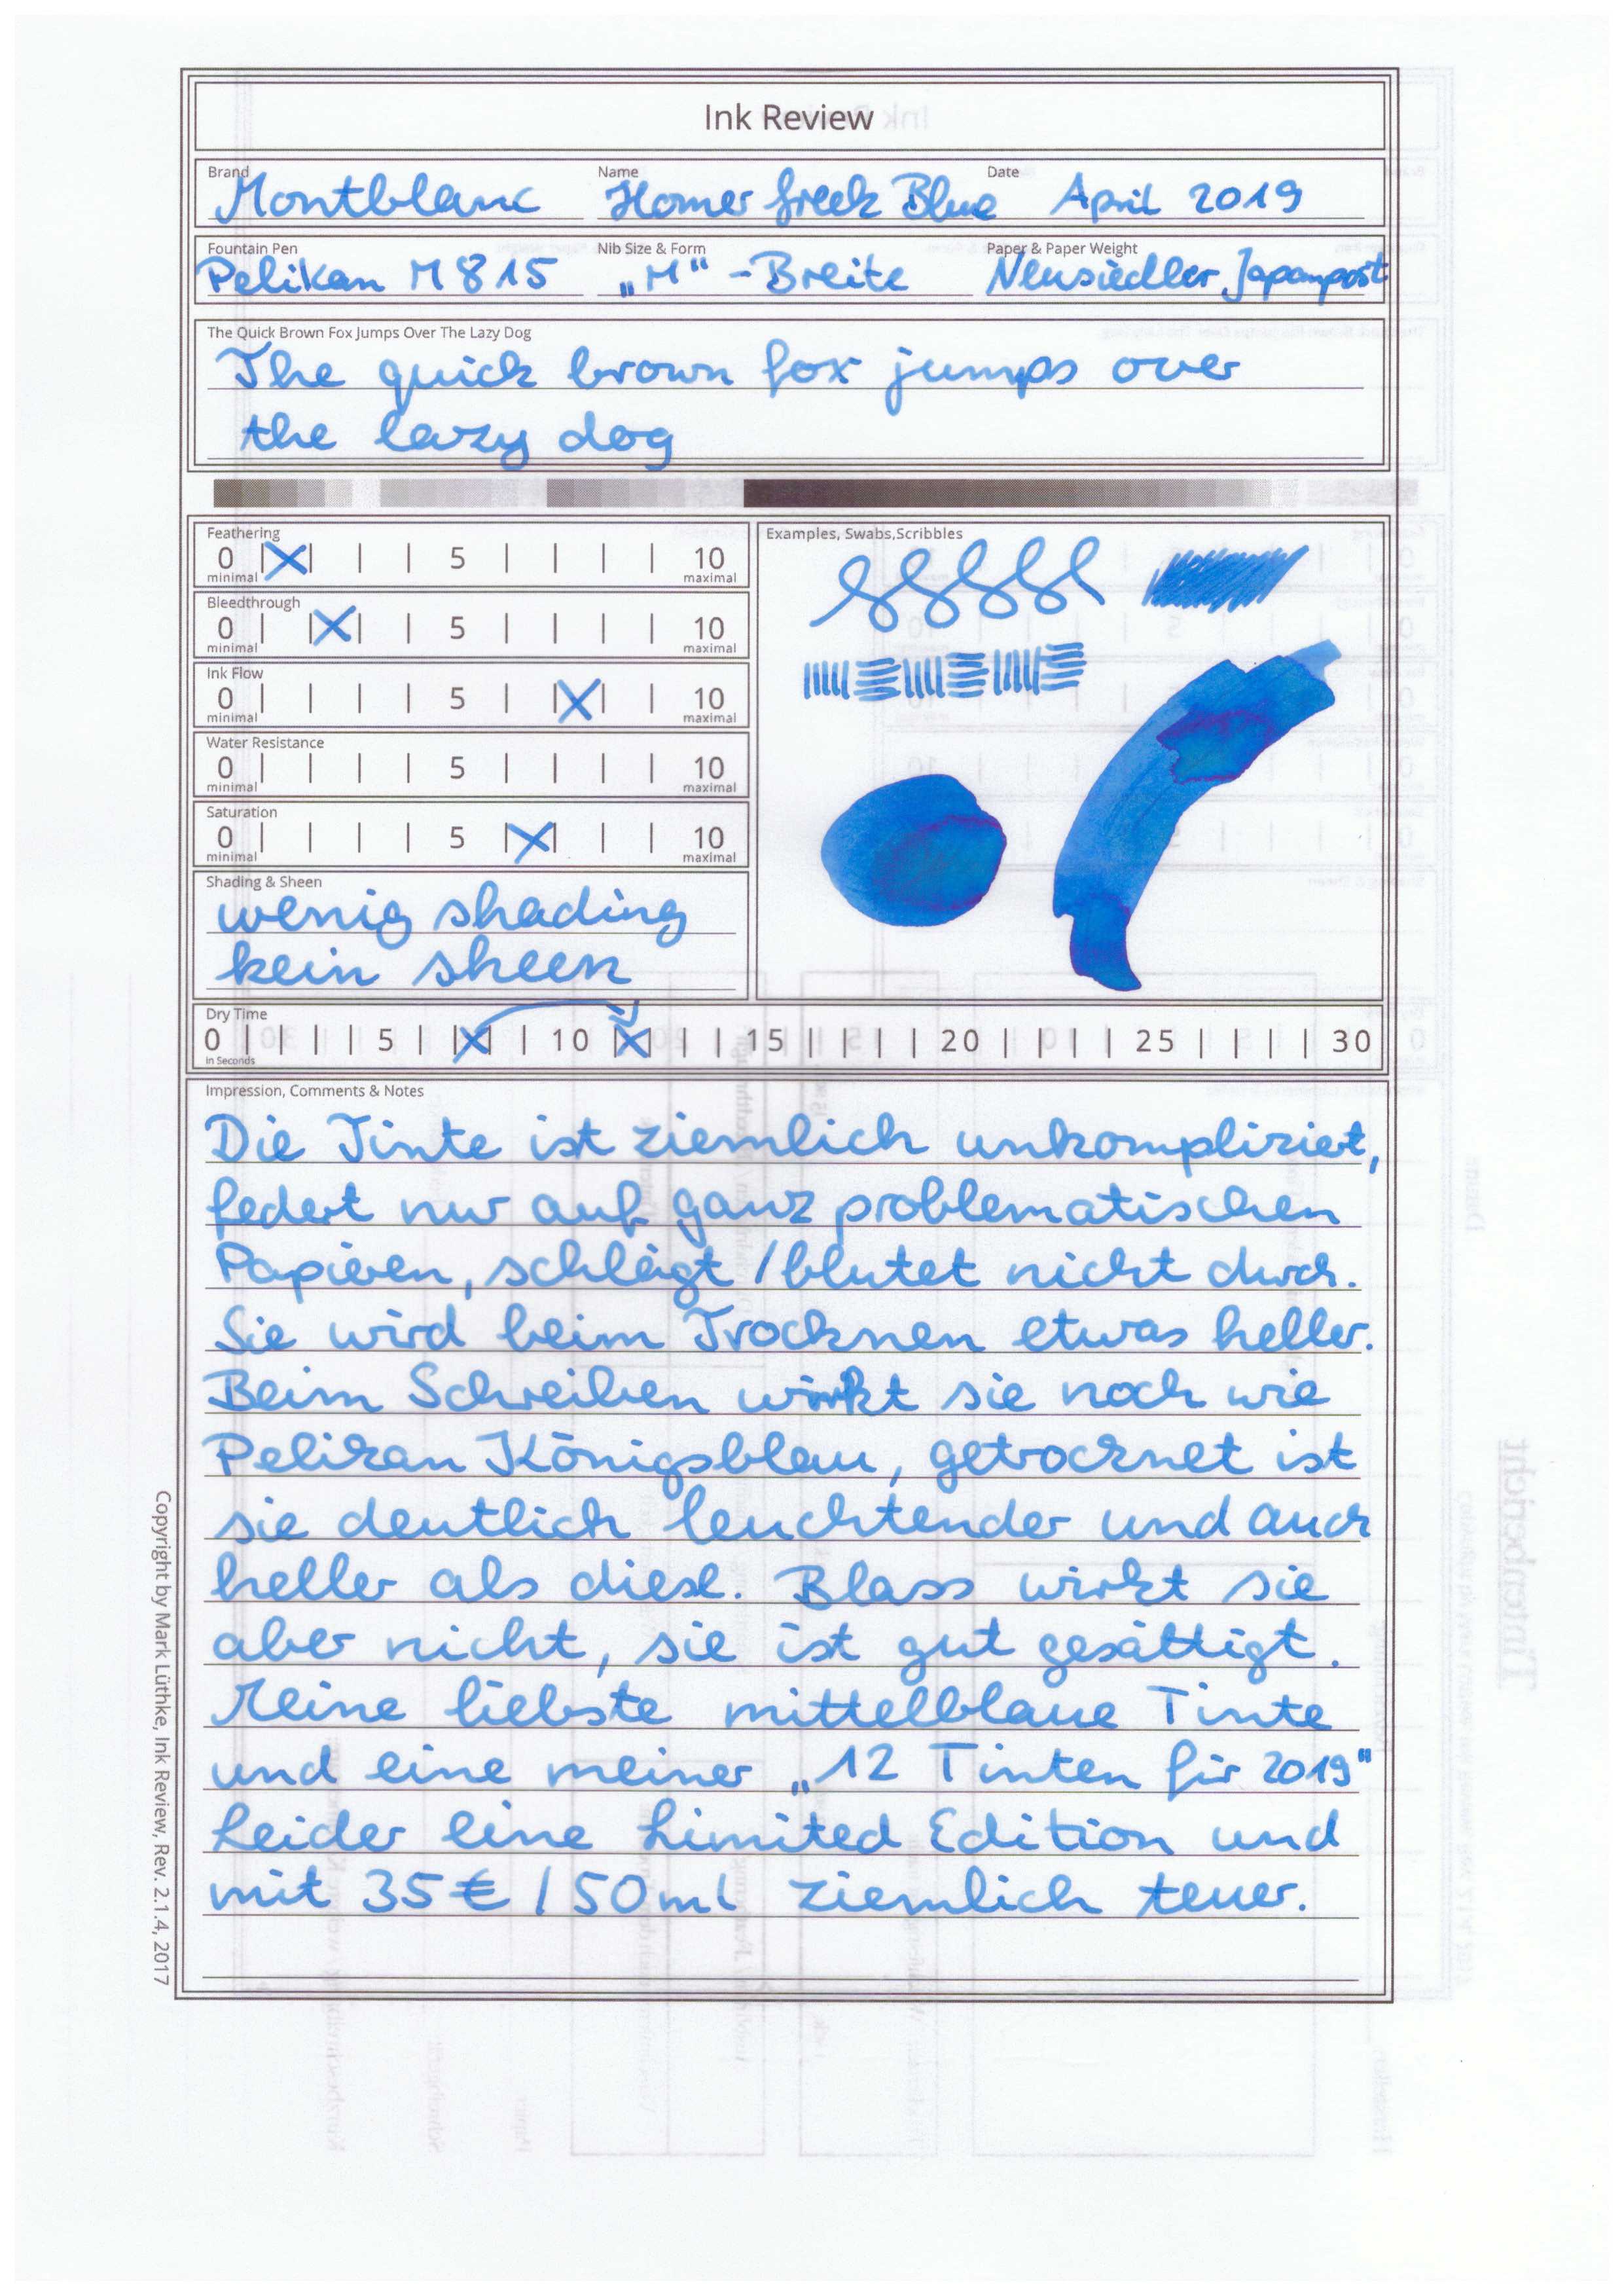 Ink Review
Brand
Name
Date
Montblanc Homer Greek Blue April 2019
Fountain Pen
Nib Size & Form
Paper & Paper Weight
Pelikan M815 „M“-Breite Neusiedler Japanpost
The Quick Brown Fox Jumps Over The Lazy Dog
The quick brown fox jumps over
the lazy dog
Feathering
0 | | | | 5 | | | | 10
minimal maximal
Bleedthrough
0 | | | | 5 | | | | 10
minimal maximal
Ink Flow
0 | | | | 5 | | | | 10
minimal maximal
Water Resistance
0 | | | | 5 | | | | 10
minimal maximal
Saturation
0 | | | | 5 | | | | 10
minimal maximal
Shading & Sheen
wenig shading
kein sheen
Examples, Swabs,Scribbles
Dry Time
0 | | | | 5 | | | | 10 | | | | 15 | | | | 20 | | | | 25 | | | | 30
in Seconds
Impression, Comments & Notes
Die Tinte ist ziemlich unkompliziert,
federt nur auf ganz problematischen
Papieren, schlägt / blutet nicht durch.
Sie wird beim Trocknen etwas heller.
Beim Schreiben wirkt sie noch wie
Pelikan Königsblau, getrocknet ist
sie deutlich leuchtender und auch
heller als diese. Blass wirkt sie
aber nicht, sie ist gut gesättigt.
Meine liebste mittelblaue Tinte
und eine meiner „12 Tinten für 2019“
Leider eine Limited Edition und
mit 35€ / 50ml ziemlich teuer.
Copyright by Mark Lüthke, Ink Review, Rev. 2.1.4, 2017
Tintenbericht